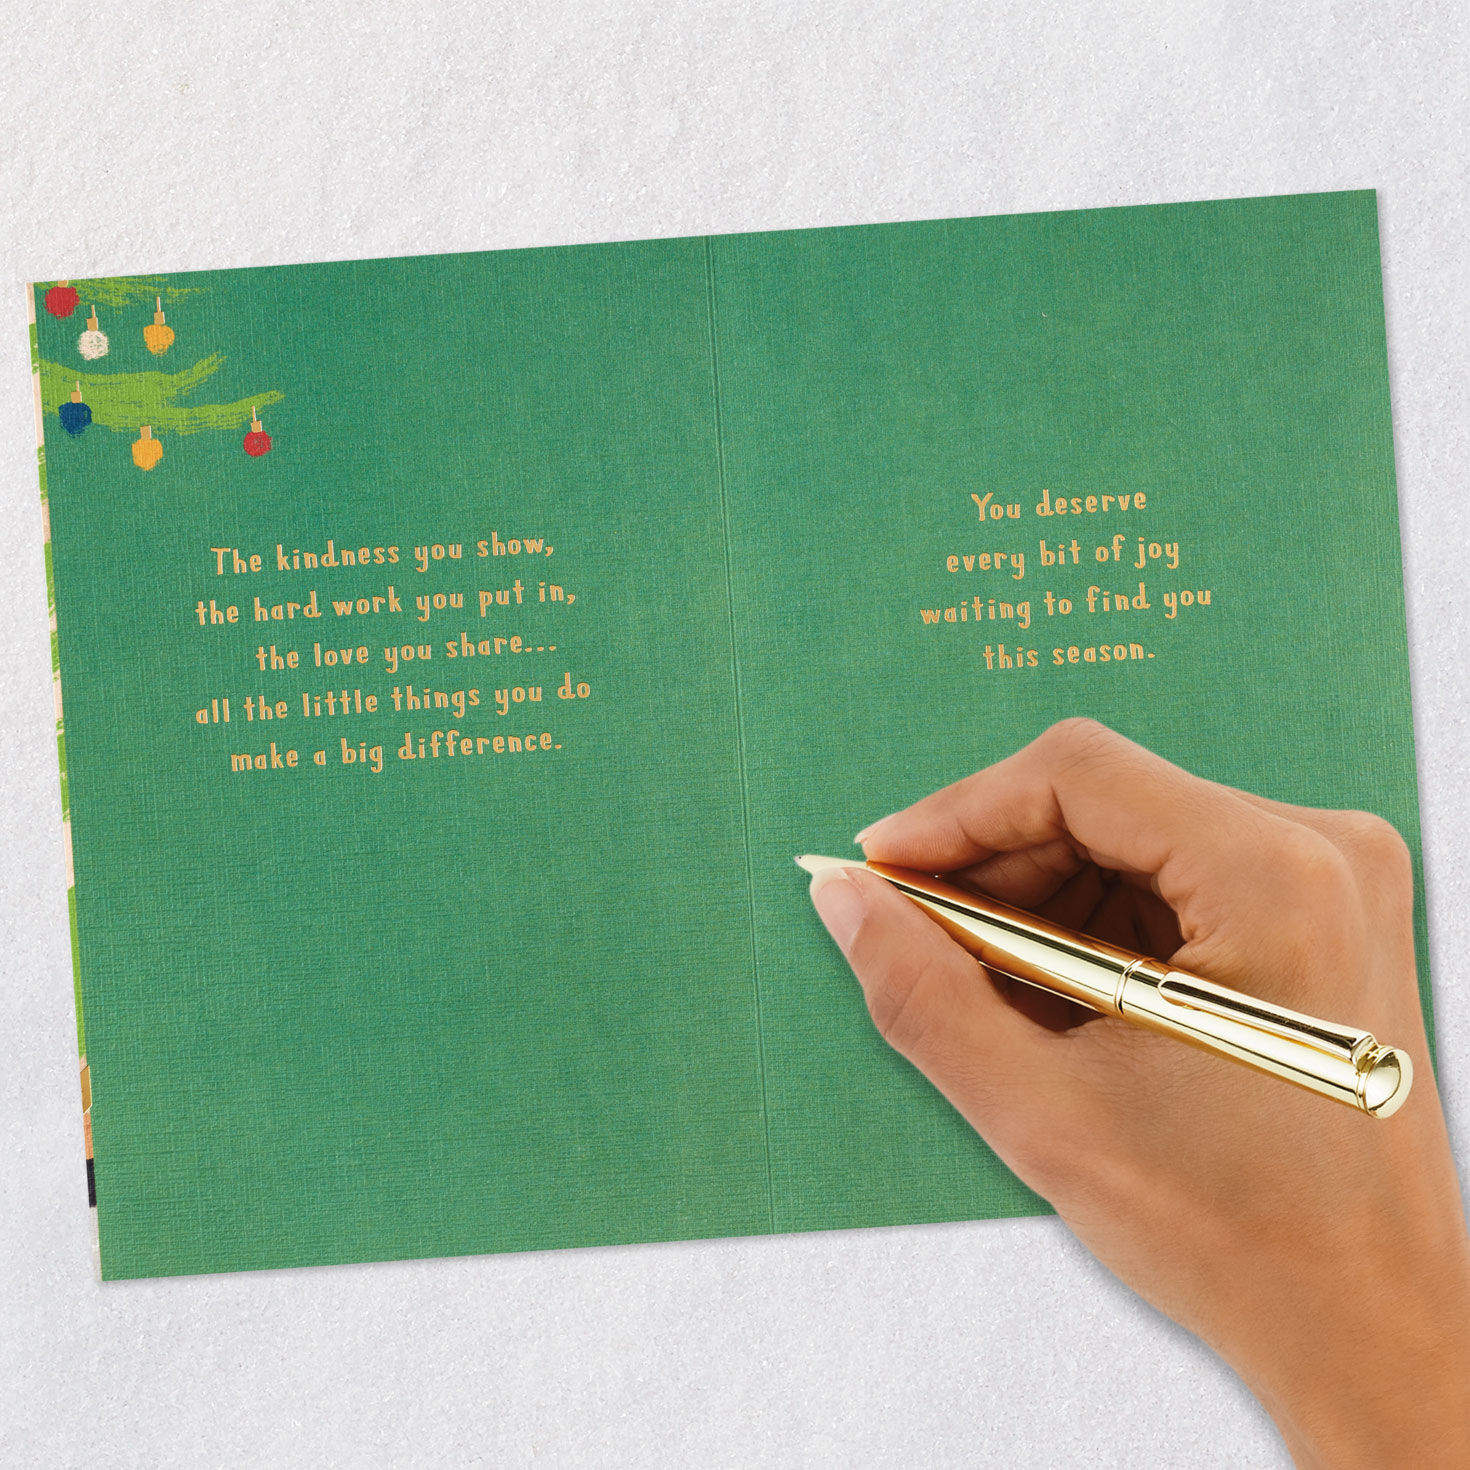 The kindness you show,
the hard work you put in,
the love you share...
all the little things you do
make a big difference.
You deserve
every bit of joy
waiting to find you
this season.